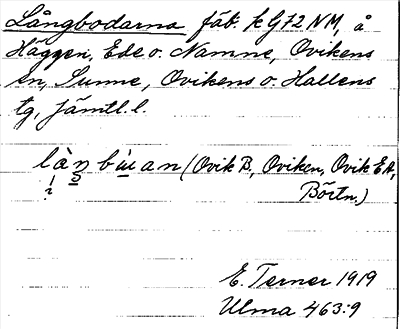 Långbodarna fäb. k G72 NM, å
Häggen, Ede o. Namne, Ovikens
sn, Sunne, Ovikens o. Hallens
tg, Jämtl. l.
(Ovik B., Oviken, Ovik E A,
Börtn.)
E. Terner 1919
Ulma 463:9